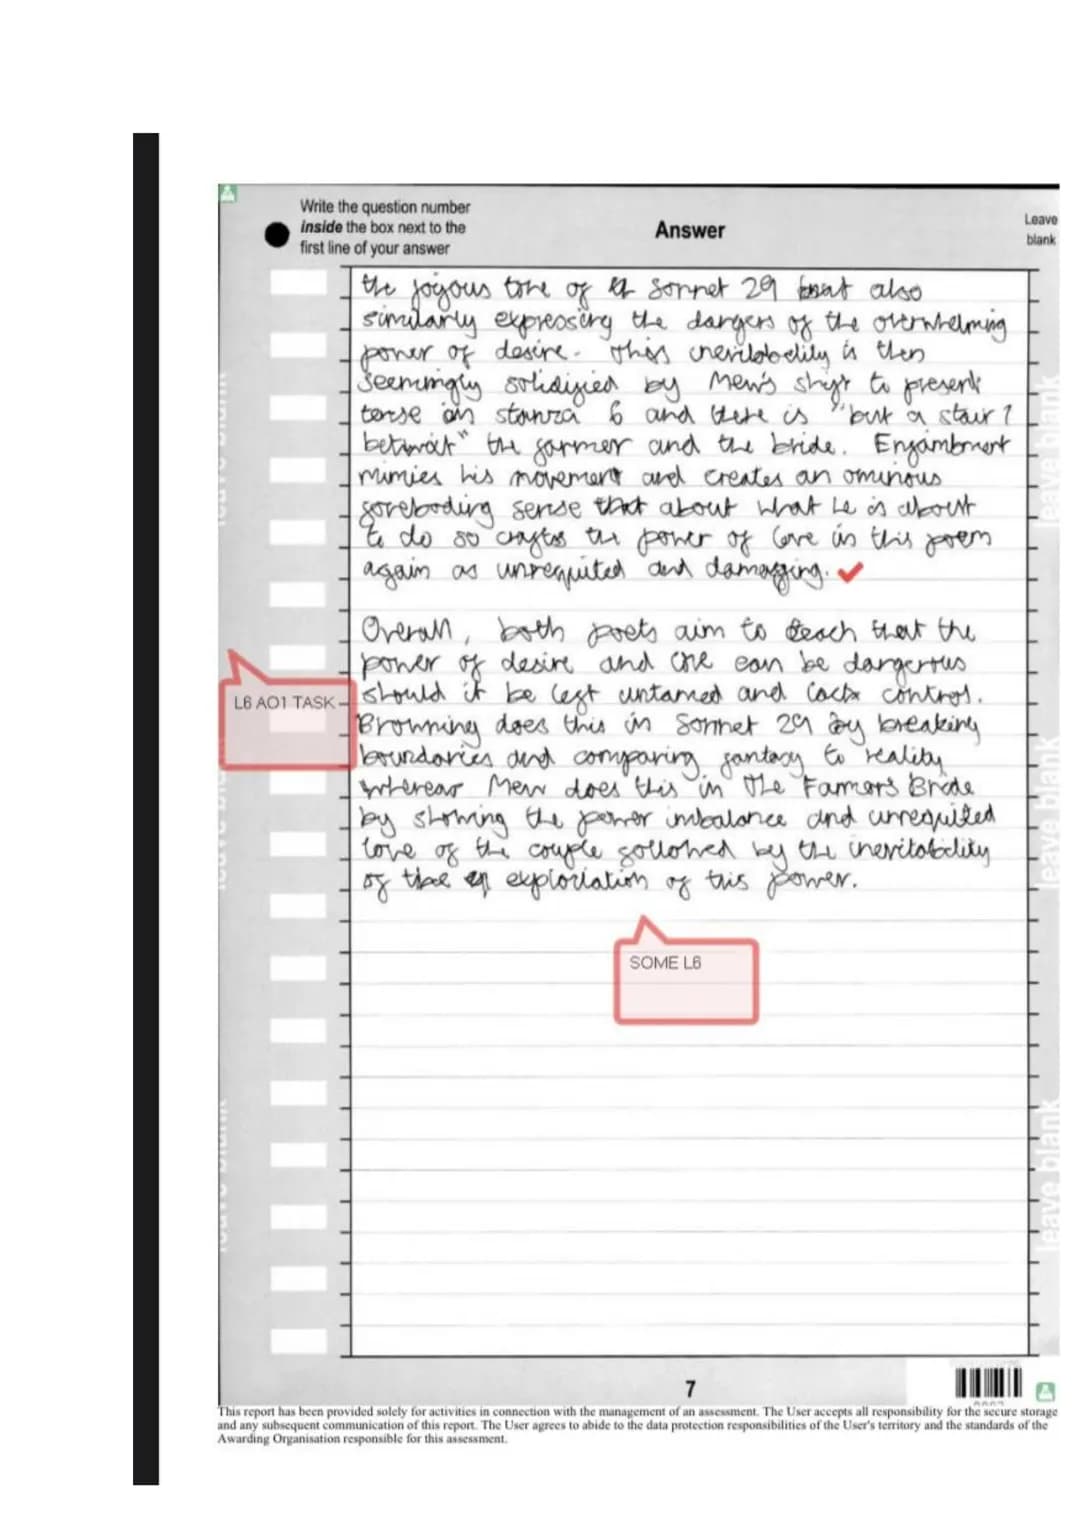 Write the question number
inside the box next to the
first line of your answer
Answer
Leave
blank
the joyous tone of Sonnet 29 but also
similarly expressing the dangers of the overwhelming
power of desire. This inevitability is then
seemingly solidified by Mew's shift to present
tense in stanza 6 and there is "but a stair?
betwixt" the farmer and the bride. Enjambment
mimics his movement and creates an ominous
foreboding sense that about what he is about
to do so crafts the power of love in this poem
again as unrequited and damaging.
Overall, both poets aim to teach that the
power of desire and love can be dangerous
should it be left untamed and lack control.
L6 AO1 TASK
Browning does this in Sonnet 29 by breaking
boundaries and comparing fantasy to reality
whereas Mew does this in The Farmers Bride
by showing the power imbalance and unrequited
love of the couple followed by the inevitability
of the exploriation of this power.
SOME L6
leave blank
leave blank
leave blank
7
This report has been provided solely for activities in connection with the management of an assessment. The User accepts all responsibility for the secure storage
and any subsequent communication of this report. The User agrees to abide to the data protection responsibilities of the User's territory and the standards of the
Awarding Organisation responsible for this assessment.